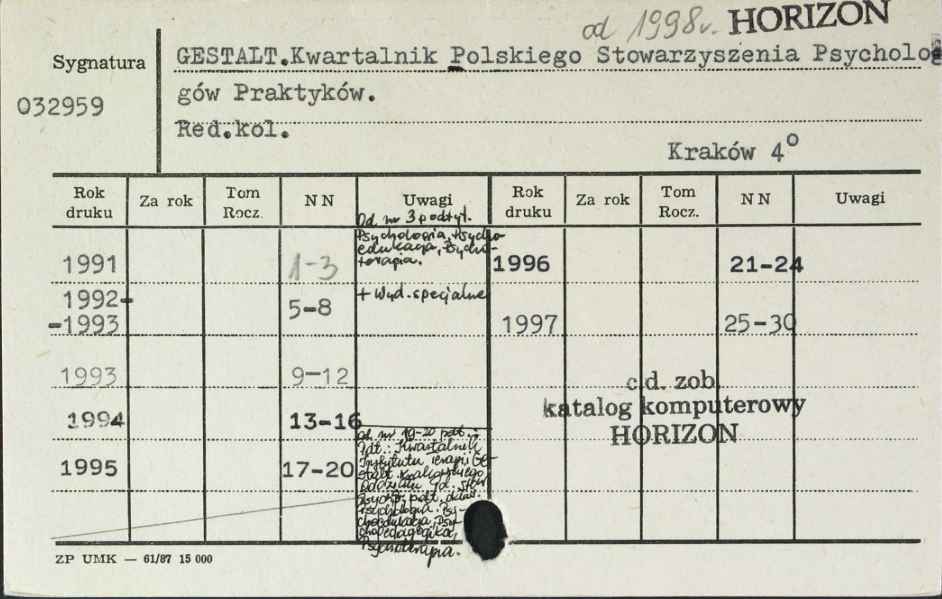 od 1998r. HORIZON
Sygnatura
032959
GESTALT.Kwartalnik Polskiego Stowarzyszenia Psycholo
gów Praktyków.
Red.kol.
Kraków 4°
Rok druku Za rok Tom Rocz. N N Uwagi Rok druku Za rok Tom Rocz. N N Uwagi
Od nr 3 podtyt.
Psychologia, Psycho-
edukacja, Psycho-
terapia.
1991 1-3 1996 21-24
1992- 5-8 + Wyd. specjalne
-1993 1997 25-30
1993 9-12
c.d. zob.
katalog komputerowy
HORIZON
1994 13-16
1995 17-20
od nr 19-20 podt.:
Kwartalnik
Instytutu Terapii Ge-
stalt Krakowskiego
Oddziału
podt. daw.
Psychologia. Psy-
choedukacja, Psy-
chopedagogika,
Psychoterapia.
ZP UMK — 61/87 15 000